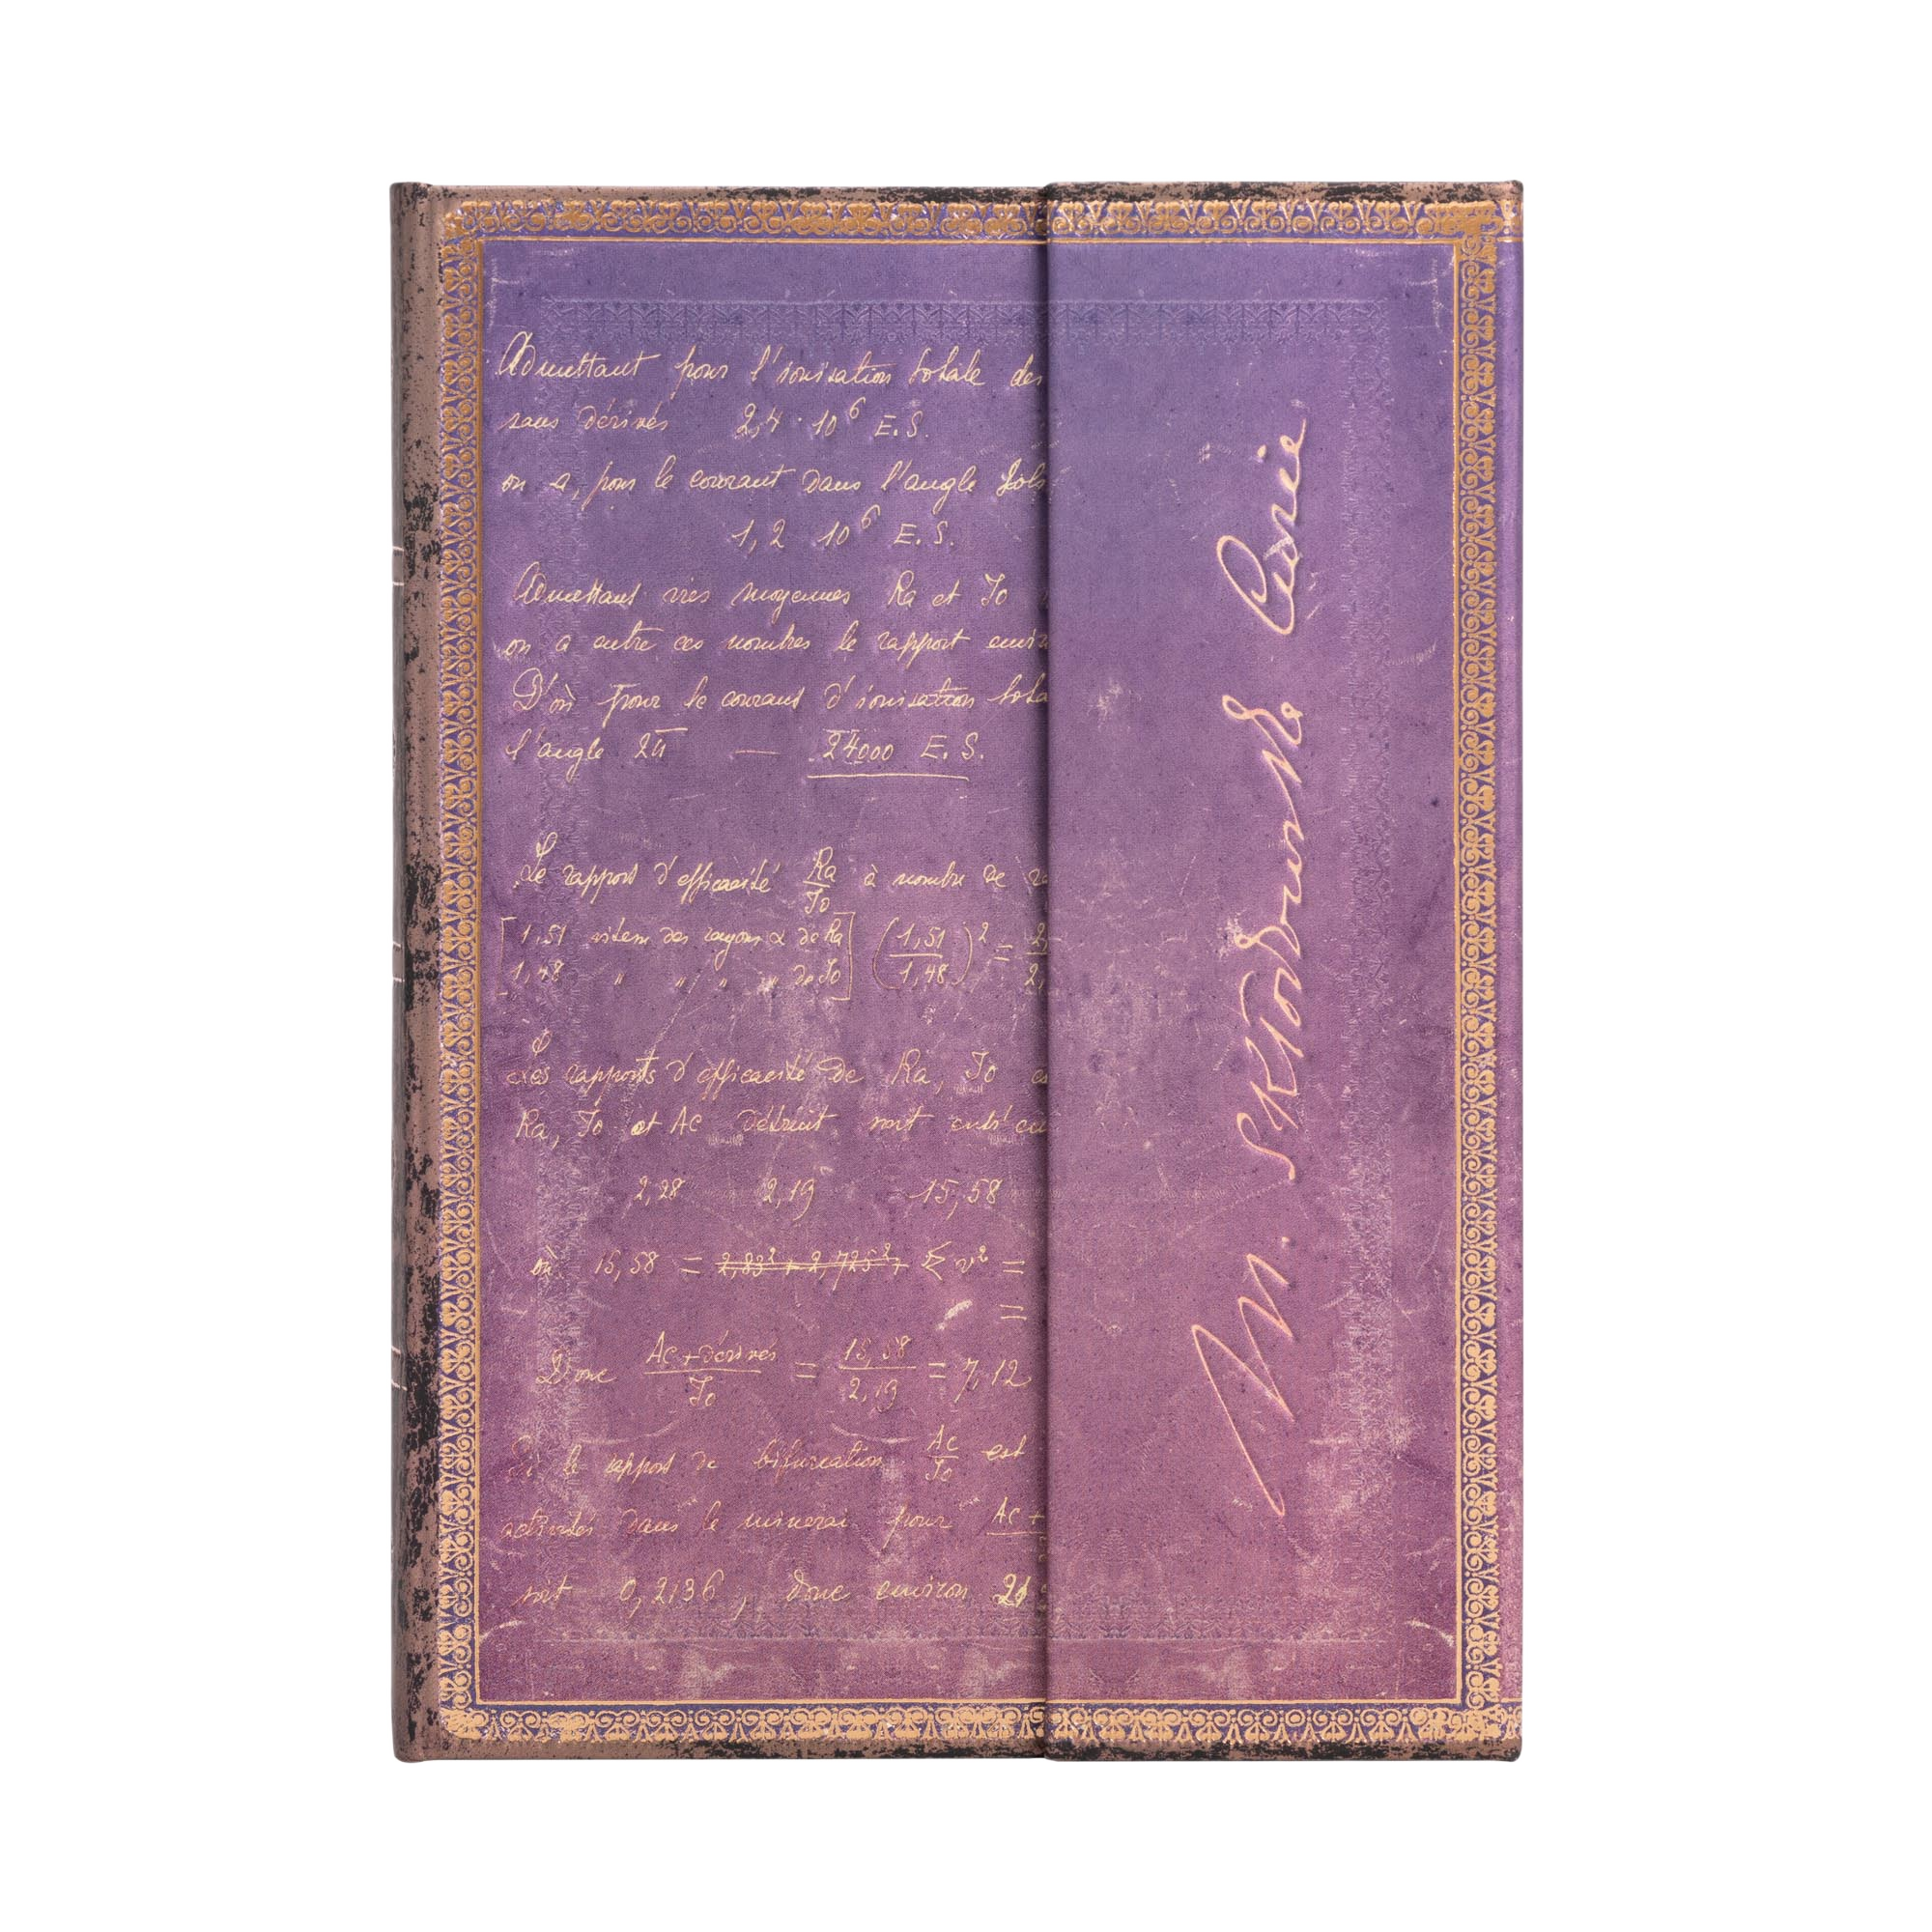 Admettant pour l'ionisation totale des
sans dérivés 2,4 · 10⁶ E.S.
on a, pour le courant dans l'angle
1,2 10⁶ E.S.
Admettant vies moyennes Ra et Io
on a entre ces nombres le rapport
D'où pour le courant d'ionisation
l'angle 2π — 24000 E.S.
Le rapport d'efficacité Ra/Io à nombre de
[1,51 vitesse des rayons α de Ra] (1,51/1,48)² =
1,48 " " " " de Io
Les rapports d'efficacité de Ra, Io
Ra, Io et Ac détruit sont
2,28 2,19 15,58
où 15,58 = 2,83² + 2,725² + Σ v² =
=
Donc Ac + dérivés/Io = 15,58/2,19 = 7,12
Si le rapport de bifurcation Ac/Io est
activités dans le minerai pour Ac +
soit 0,2136, donc environ 21
M. Skłodowska Curie